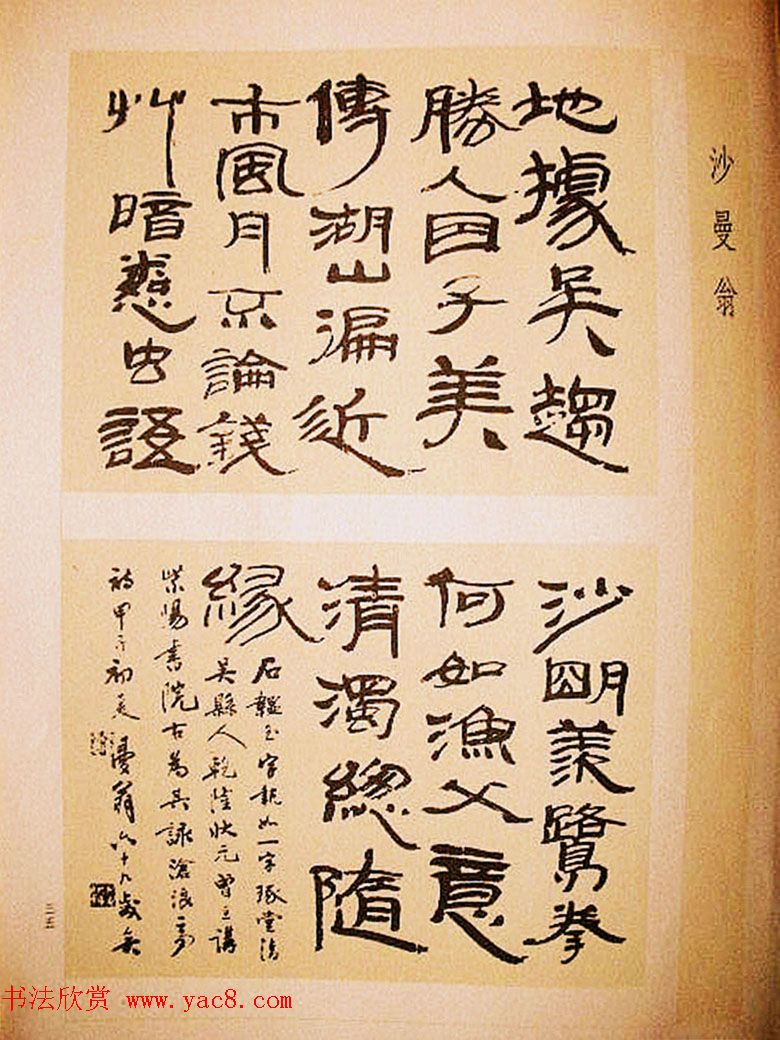 沙曼翁
地據吳趨
勝人因子美
傳湖山偏近
市風月不論錢
艸暗悲虫語
沙明羨鷺拳
何如漁父意
清濁總隨
緣
石韞玉字執如一字琢堂清
吳縣人乾隆狀元曾主講
紫陽書院右為其詠滄浪亭
詩甲子初夏曼翁六十九歲
三五
书法欣赏 www.yac8.com